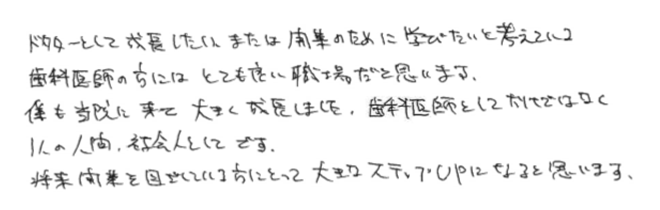 ドクターとして成長したい、または開業のために学びたいと考えている
歯科医師の方にはとても良い職場だと思います。
僕も当院に来て大きく成長しました。歯科医師としてだけではなく
1人の人間、社会人としてです。
将来開業を目ざしている方にとって大きなステップUPになると思います。